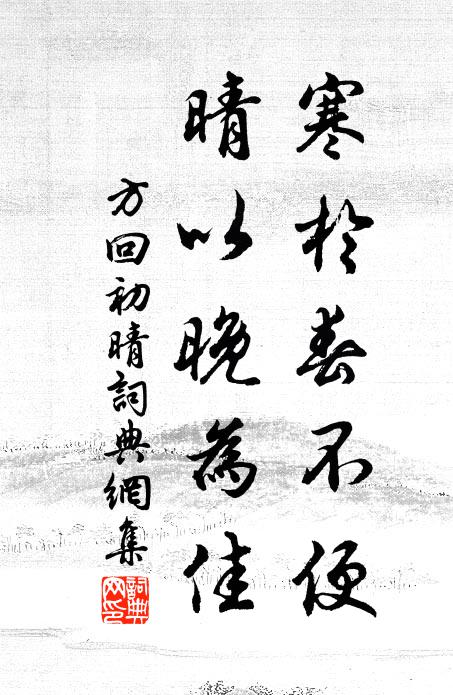 寒於春不便
晴以晚為佳
方回初晴詞典網集
詞典網印